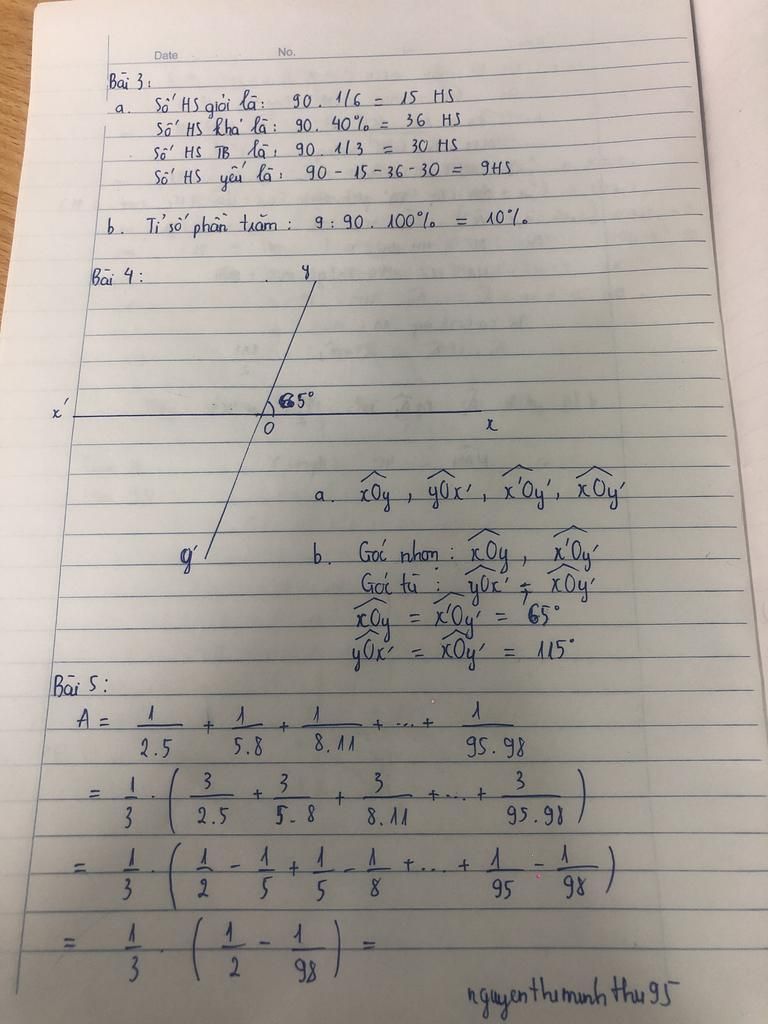 Date No.
Bài 3:
a. Số HS giỏi là: 90 . 1/6 = 15 HS
Số HS khá là: 90. 40% = 36 HS
Số HS TB là: 90. 1/3 = 30 HS
Số HS yếu là: 90 - 15 - 36 - 30 = 9HS
b. Tỉ số phần trăm: 9 : 90 . 100% = 10%
Bài 4:
y
65°
x' O x
a. xOy, yOx', x'Oy', xOy'
y' b. Góc nhọn: xOy, x'Oy'
Góc tù: yOx', xOy'
xOy = x'Oy' = 65°
yOx' = xOy' = 115°
Bài 5:
A = 1/2.5 + 1/5.8 + 1/8.11 + ... + 1/95.98
= 1/3 . (3/2.5 + 3/5.8 + 3/8.11 + ... + 3/95.98)
= 1/3 . (1/2 - 1/5 + 1/5 - 1/8 + ... + 1/95 - 1/98)
= 1/3 . (1/2 - 1/98) =
nguyenthiminhthu95